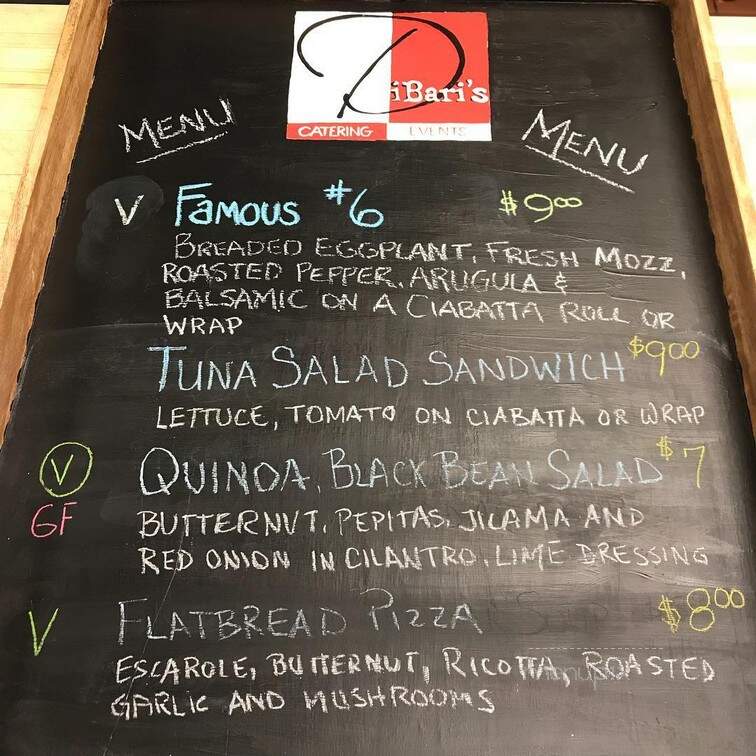 DiBari's
CATERING EVENTS
MENU MENU
V FAMOUS #6 $9.00
BREADED EGGPLANT, FRESH MOZZ,
ROASTED PEPPER, ARUGULA &
BALSAMIC ON A CIABATTA ROLL OR
WRAP
TUNA SALAD SANDWICH $9.00
LETTUCE, TOMATO ON CIABATTA OR WRAP
V QUINOA, BLACK BEAN SALAD $7
GF BUTTERNUT, PEPITAS, JICAMA AND
RED ONION IN CILANTRO, LIME DRESSING
V FLATBREAD PIZZA $8.00
ESCAROLE, BUTTERNUT, RICOTTA, ROASTED
GARLIC AND MUSHROOMS